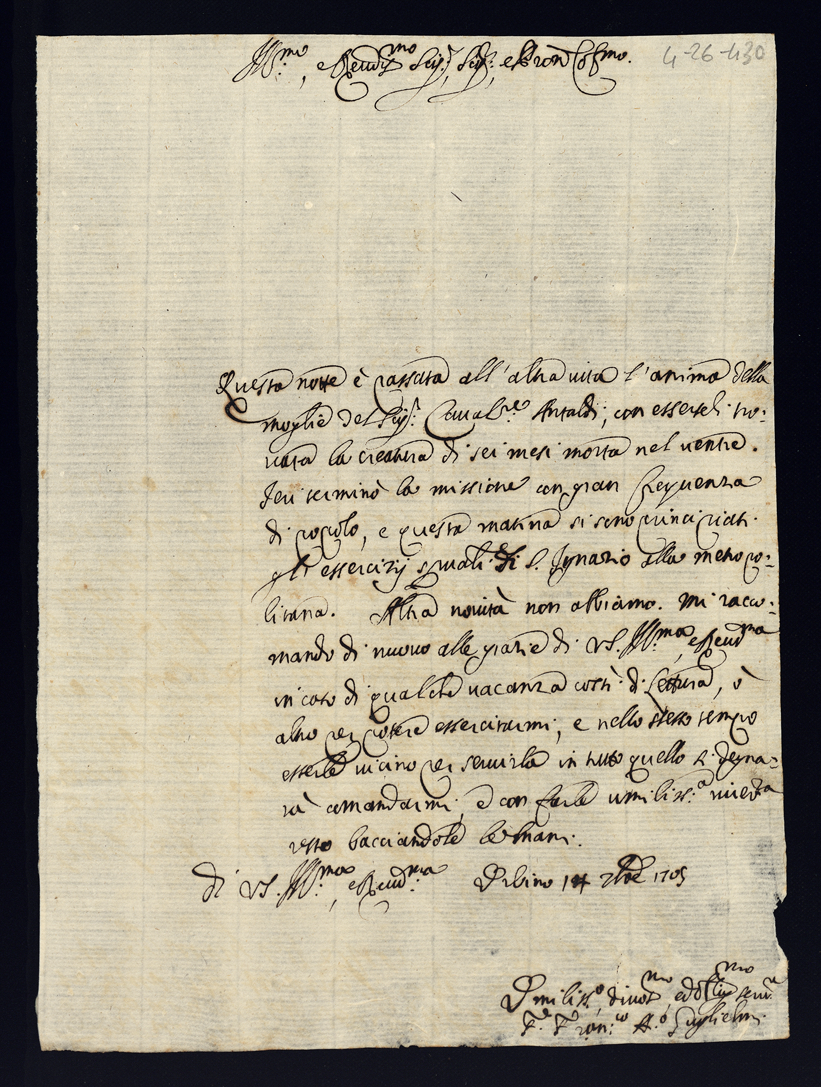 Ill.mo, e Reud.mo Sig.r, Sig.r, e Pron Col.mo.
4-26-430
Questa notte è passata all'altra uita l'anima della
moglie del Sig.r Caual.re Antaldi, con esserseli tro:
uata la creatura di sei mesi morta nel uentre.
Ieri terminò la missione con gran frequenza
di popolo, e questa matina si sono principiati
gli essercizij sp.uali di S. Ignazio alla metropo:
litana. Altra nouità non abbiamo. Mi racco:
mando di nuouo alle grazie di VS. Ill.ma, e Reud.ma
in caso di qualche uacanza costì di Lettura, ò
altro per potere essercitarmi, e nello stesso tempo
esserle uicino per seruirla in tutto quello si degna:
rà comandarmi, e con farle umiliss.a riuerza
resto bacciandole le mani.
di VS. Ill.ma, e Reud.ma Vrbino 14 1705
Vmiliss.o diuot.mo, ed obl.mo seru.e
F. Fran.co A.o Guglielmi